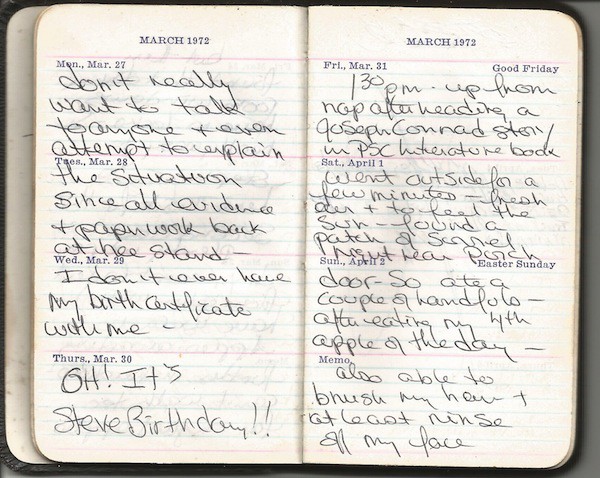 MARCH 1972
Mon., Mar. 27
don't really
want to talk
to anyone + even
attempt to explain
Tues., Mar. 28
the situation
since all evidence
+ paperwork back
at tree stand —
Wed., Mar. 29
I don't even have
my birth certificate
with me —
Thurs., Mar. 30
OH! It's
Steve Birthday!!
MARCH 1972
Fri., Mar. 31 Good Friday
1 30 pm - up from
nap after reading a
Joseph Conrad story
in PSC literature book
Sat., April 1
went outside for a
few minutes — fresh
air + to feel the
sun — found a
patch of sorrel
right near porch
Sun., April 2 Easter Sunday
door - So ate a
couple of handfuls —
after eating my 4th
apple of the day —
Memo.
also able to
brush my hair +
at least rinse
off my face